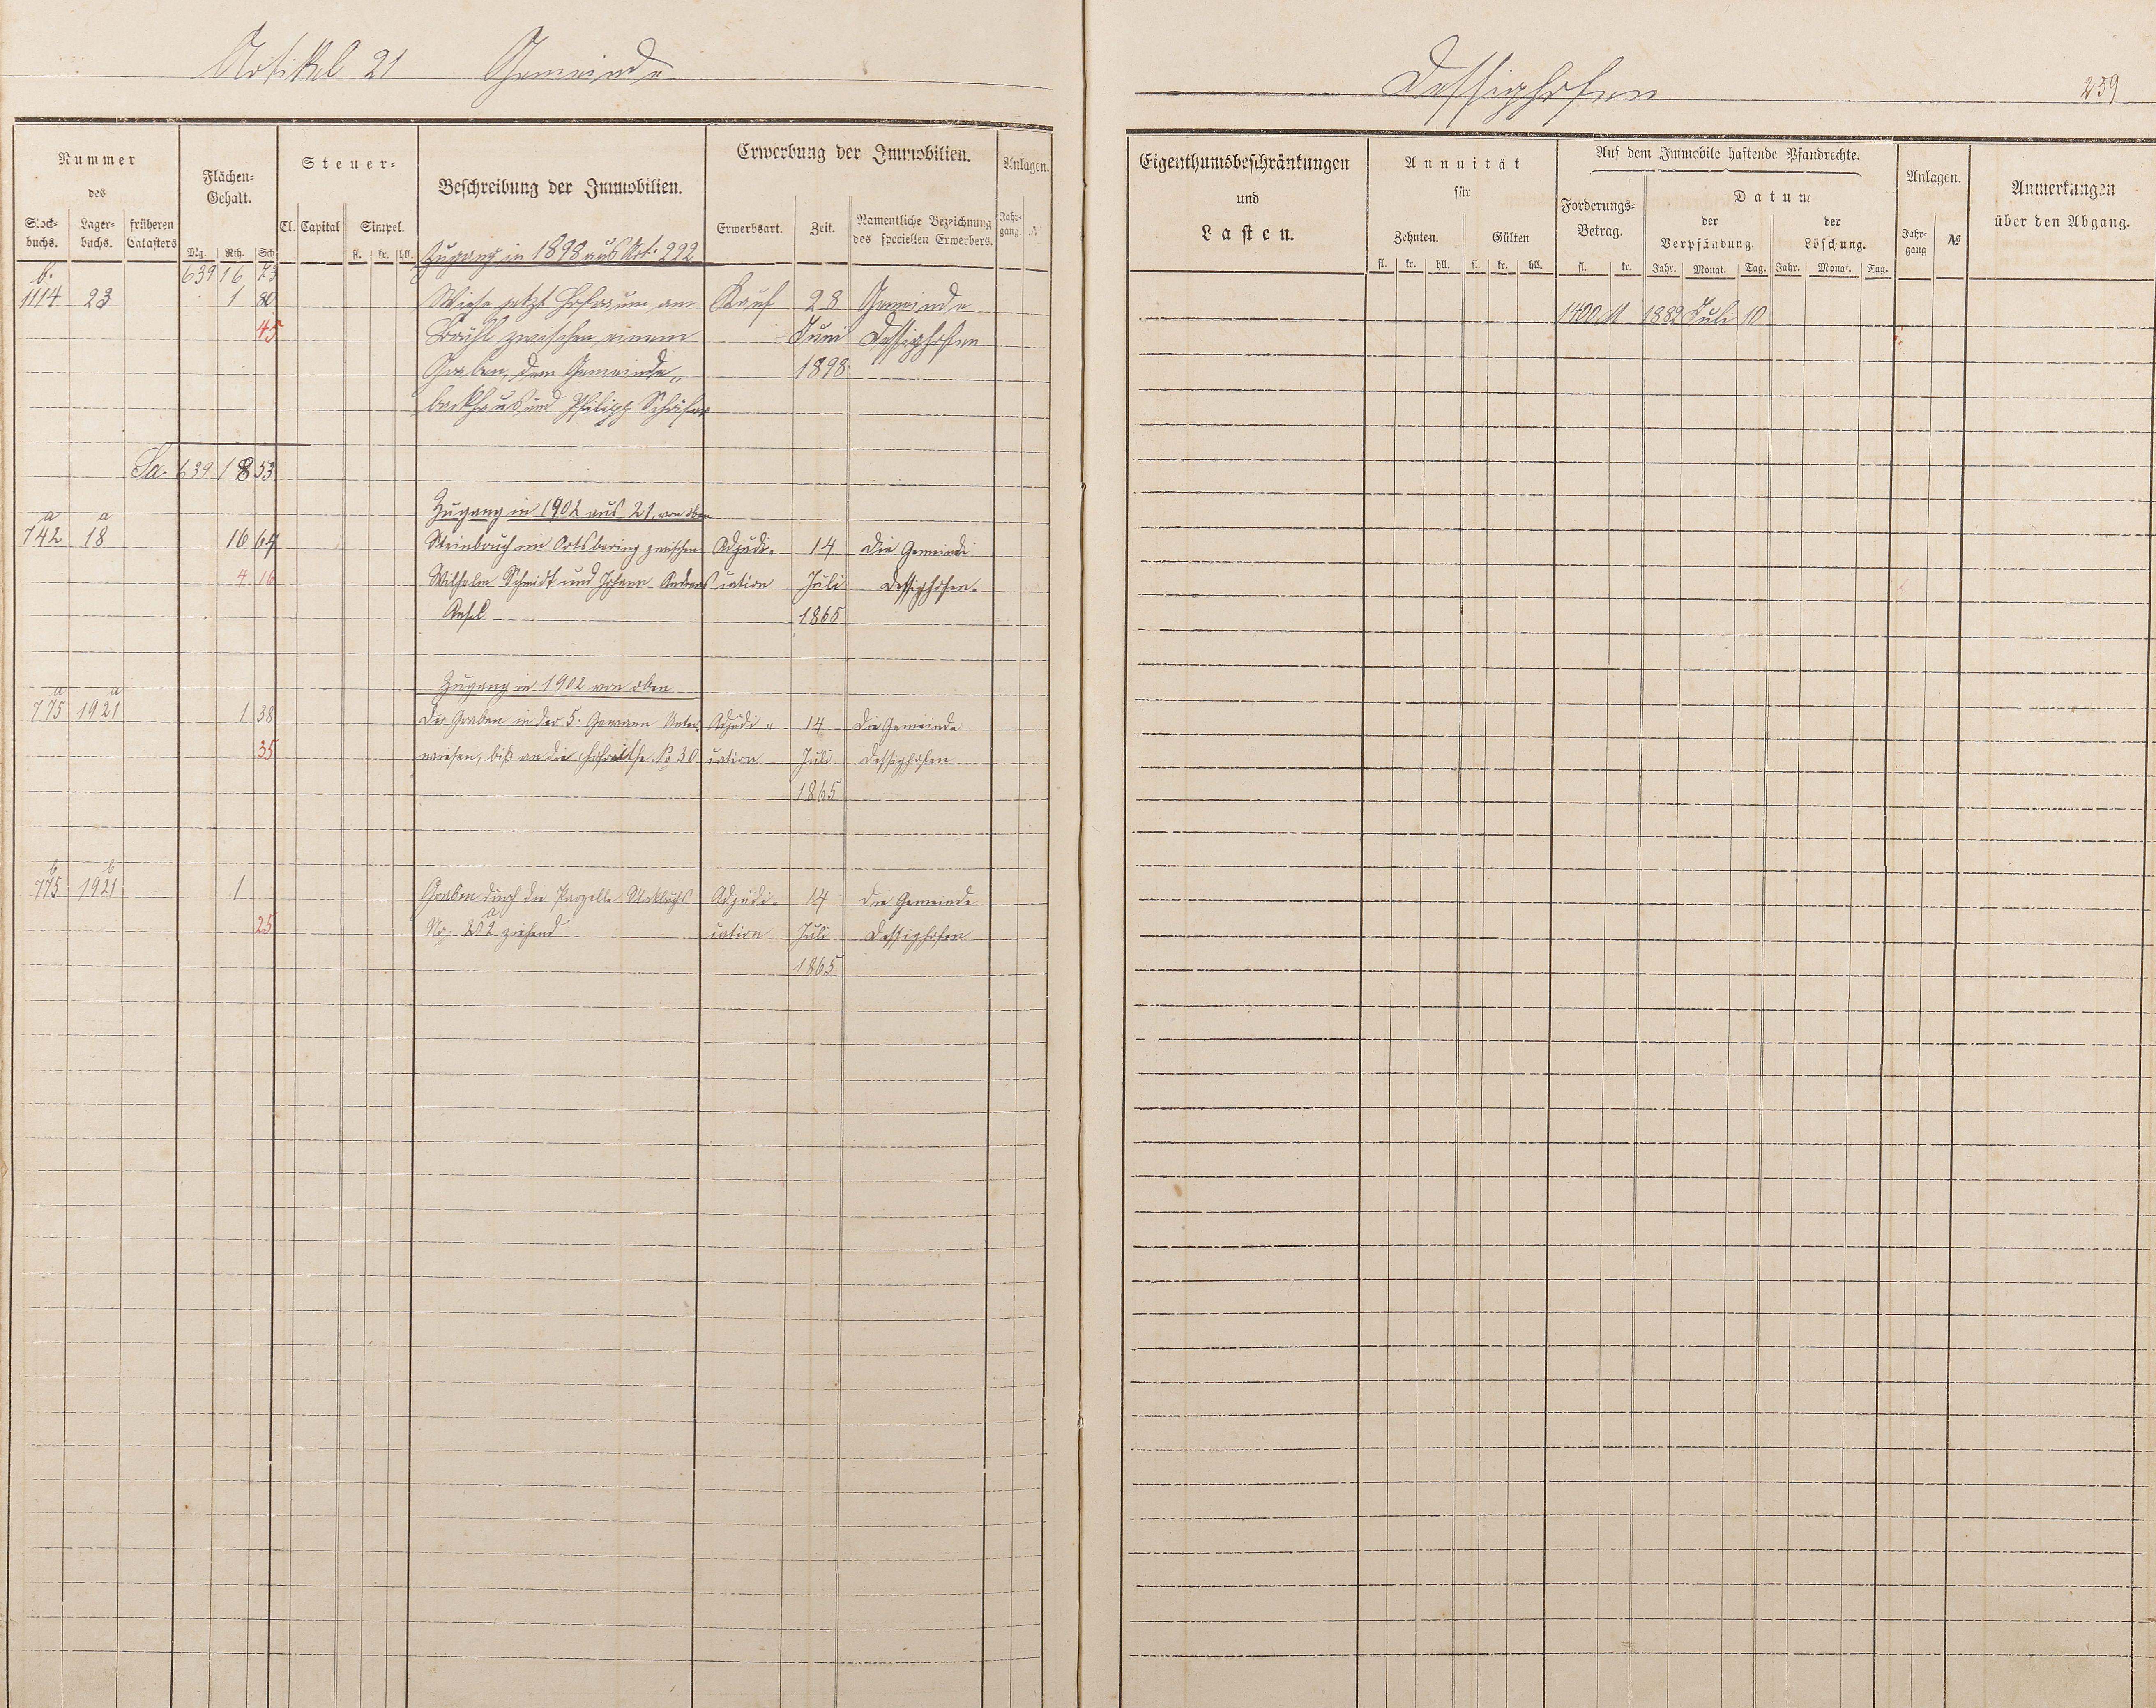 Artikel 21 Gemeinde
Nummer
des
Stock-
buchs.
Lager-
buchs.
früheren
Catasters
Flächen-
Gehalt.
Mg. Rth. Sch.
Steuer-
Cl. Capital Simpel.
fl. kr. hll.
Beschreibung der Immobilien.
Erwerbung der Immobilien.
Erwerbsart. Zeit. Namentliche Bezeichnung
des speciellen Erwerbers.
Anlagen.
Jahr-
gang. №
Zugang in 1898 aus Art. 222
b. 639 16 73
1114 23 1 80 Wiese jetzt Hofraum am Kauf 28 Gemeinde
45 Brühl zwischen einem Juni Dessighofen
Graben, dem Gemeinde- 1898
backhaus und Philipp Schäfer
Sa. 639 18 53
Zugang in 1902 aus 21. von oben
a a
742 18 16 64 Steinbruch im Ortsbering zwischen Adjudi- 14 die Gemeinde
4 16 Wilhelm Schmidt und Johann Andreas cation Juli Dessighofen.
1865
Zugang in 1902 von oben
a a
775 1921 1 38 Der Graben in der 5. Gewann Unter- Adjudi- 14 Die Gemeinde
35 wiesen, biß an die Hofreithe № 30 cation Juli Dessighofen
1865
b b
775 1921 1 Graben durch die Parzelle Stockbuchs Adjudi- 14 Die Gemeinde
a
25 Nr. 202 ziehend cation Juli Dessighofen
1865
Dessighofen 259
Eigenthumsbeschränkungen
und
Lasten.
Annuität
für
Zehnten. Gülten
fl. kr. hll. fl. kr. hll.
Auf dem Immobile haftende Pfandrechte.
Forderungs-
Betrag.
fl. kr.
Datum
der
Verpfändung.
der
Löschung.
Jahr. Monat. Tag. Jahr. Monat. Tag.
Anlagen.
Jahr-
gang №
Anmerkungen
über den Abgang.
1400 M 1882 Juli 10